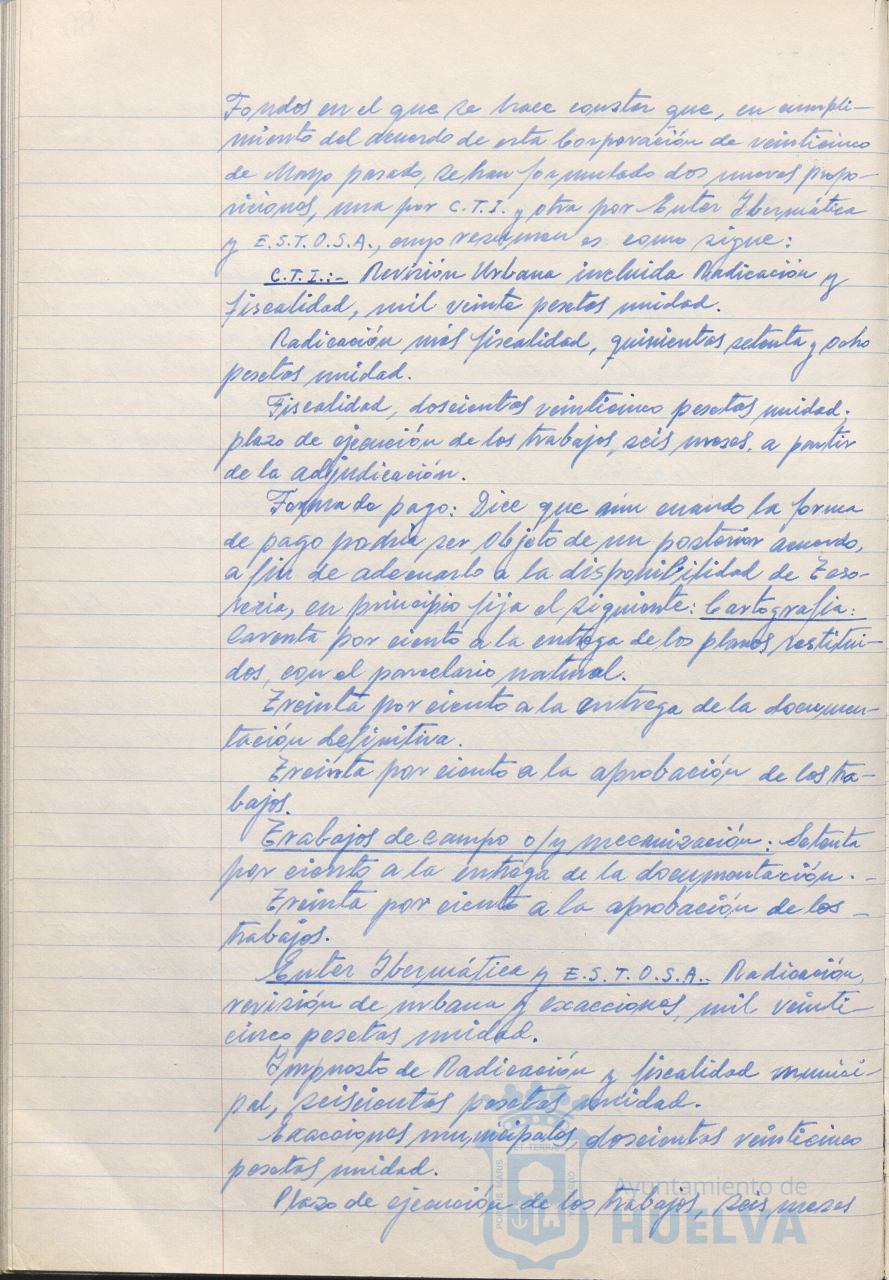 Fondos en el que se hace constar que, en cumpli-
miento del acuerdo de esta Corporación de veinticinco
de Mayo pasado, se han formulado dos nuevas propo-
siciones, una por C.T.I. y otra por Enter Ibermática
y E.S.T.O.S.A., cuyo resumen es como sigue:
C.T.I.:- Revisión Urbana incluida Radicación y
fiscalidad, mil veinte pesetas unidad.
Radicación más fiscalidad, quinientas setenta y ocho
pesetas unidad.
Fiscalidad, doscientas veinticinco pesetas unidad;
plazo de ejecución de los trabajos, seis meses. a partir
de la adjudicación.
Forma de pago: Dice que aún cuando la forma
de pago podría ser objeto de un posterior acuerdo,
a fin de adecuarlo a la disponibilidad de Teso-
rería, en principio fija el siguiente: Cartografía:
Carenta por ciento a la entrega de los planos restitui-
dos, con el parcelario natural.
Treinta por ciento a la entrega de la documen-
tación definitiva.
Treinta por ciento a la aprobación de los tra-
bajos.
Trabajos de campo o/y mecanización: Setenta
por ciento a la entrega de la documentación. -
Treinta por ciento a la aprobación de los -
trabajos.
Enter Ibermática y E.S.T.O.S.A.: Radicación,
revisión de urbana y exacciones, mil veinti-
cinco pesetas unidad.
Impuesto de Radicación y fiscalidad munici-
pal, seiscientas pesetas unidad.
Exacciones municipales, doscientas veinticinco
pesetas unidad.
Plazo de ejecución de los trabajos, seis meses
PORTUS MARIS
ET TERRAE
CUSTODIA
Ayuntamiento de
HUELVA